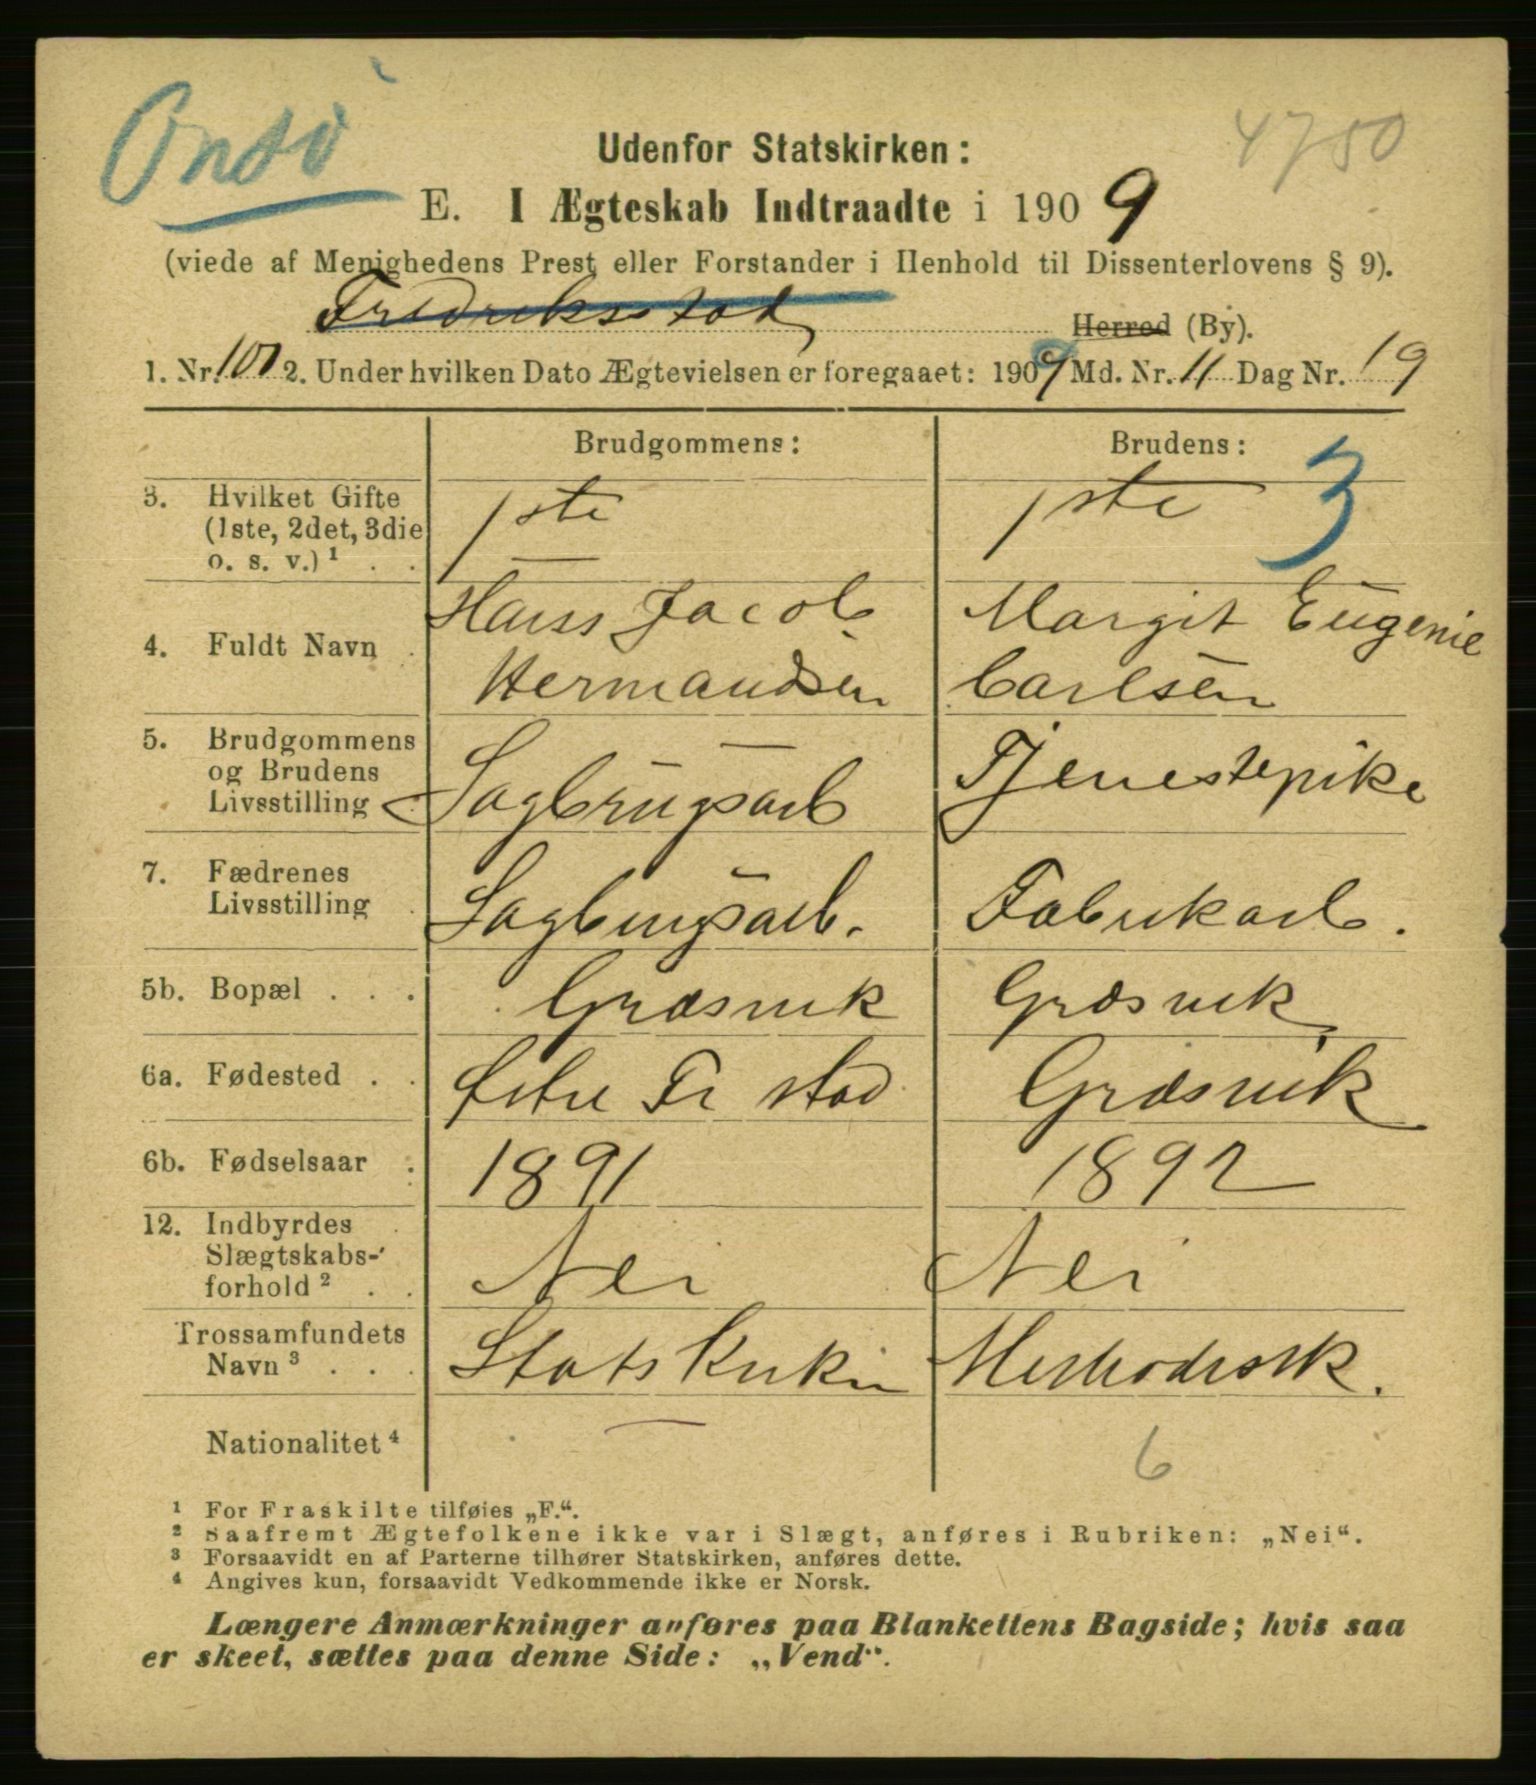 Onsö
4750
Udenfor Statskirken:
E. I Ægteskab Indtraadte i 1909
(viede af Menighedens Prest eller Forstander i Henhold til Dissenterlovens § 9).
Fredriksstad Herred (By).
1. Nr. 101 2. Under hvilken Dato Ægtevielsen er foregaaet: 1909 Md. Nr. 11 Dag Nr. 19
Brudgommens: Brudens:
3
3. Hvilket Gifte
(1ste, 2det, 3die
o. s. v.) ¹ . . 1ste 1ste
Hans Jacob Margit Eugenie
4. Fuldt Navn .
Hermandsen Carlsen
5. Brudgommens
og Brudens
Livsstilling . Sagbrugsarb Tjenestepike
7. Fædrenes
Livsstilling . Sagbrugsarb. Fabrikarb.
5b. Bopæl . . . Græsvik Græsvik
6a. Fødested . . Østre Fr stad Græsvik
6b. Fødselsaar . 1891 1892
12. Indbyrdes
Slægtskabs-
forhold ² . . Nei Nei
Trossamfundets
Navn ³ . . . Statskirken Methodistk.
Nationalitet ⁴
6
¹ For Fraskilte tilføies „F.“.
² Saafremt Ægtefolkene ikke var i Slægt, anføres i Rubriken: „Nei“.
³ Forsaavidt en af Parterne tilhører Statskirken, anføres dette.
⁴ Angives kun, forsaavidt Vedkommende ikke er Norsk.
Længere Anmærkninger anføres paa Blankettens Bagside; hvis saa
er skeet, sættes paa denne Side: „Vend“.